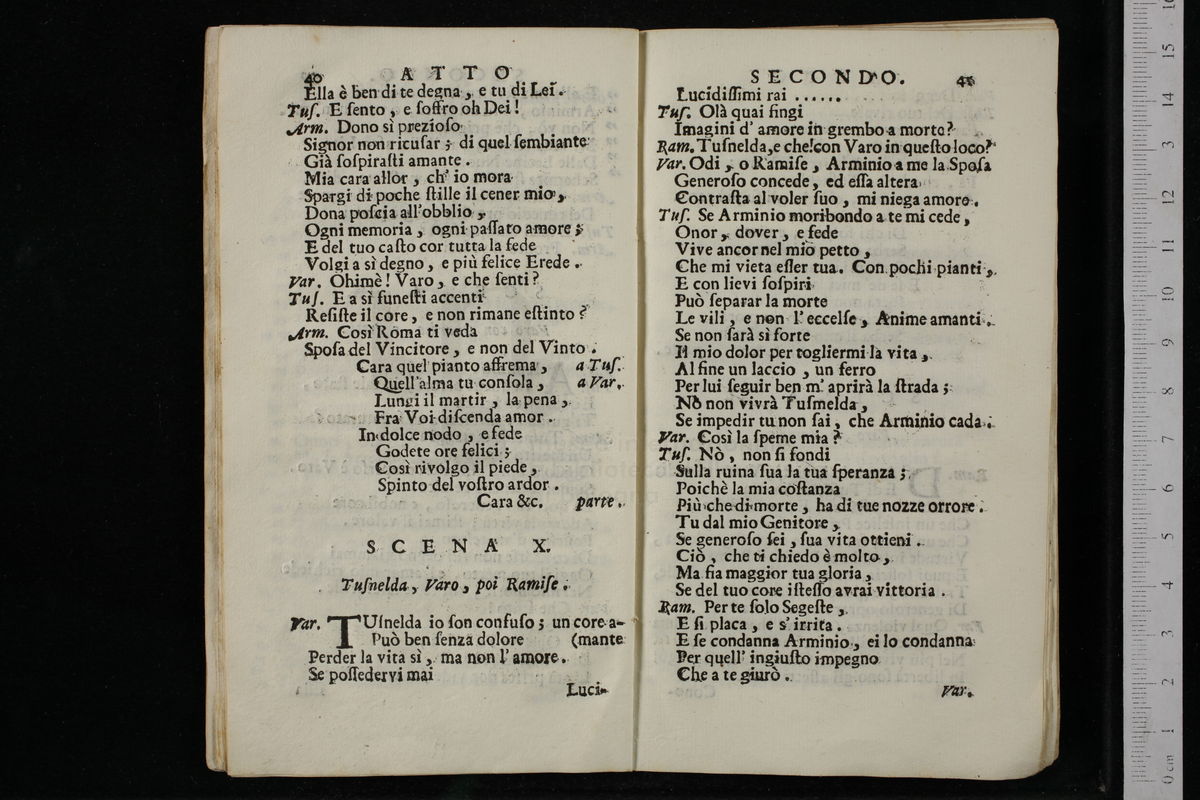 40 ATTO
Ella è ben di te degna, e tu di Leî.
Tuſ. E ſento, e ſoffro oh Dei!
Arm. Dono sì prezioſo
Signor non ricuſar; di quel ſembiante
Già ſoſpiraſti amante.
Mia cara allor, ch' io mora
Spargi di poche ſtille il cener mio,
Dona poſcia all'obblio,
Ogni memoria, ogni paſſato amore;
E del tuo caſto cor tutta la fede
Volgi a sì degno, e più felice Erede.
Var. Ohimè! Varo, e che ſenti?
Tuſ. E a sì funeſti accenti
Reſiſte il core, e non rimane eſtinto?
Arm. Così Roma ti veda
Spoſa del Vincitore, e non del Vinto.
Cara quel pianto affrema, a Tuſ.
Quell'alma tu conſola, a Var.
Lungi il martir, la pena,
Fra Voi diſcenda amor.
In dolce nodo, e fede
Godete ore felici;
Così rivolgo il piede,
Spinto del voſtro ardor.
Cara &c. parte.
SCENA X.
Tuſnelda, Varo, poi Ramiſe.
Var. TUſnelda io ſon confuſo; un core a-
Può ben ſenza dolore (mante
Perder la vita sì, ma non l'amore.
Se poſſedervi mai
Luci-
SECONDO. 41
Lucidiſſimi rai ......
Tuſ. Olà quai fingi
Imagini d' amore in grembo a morte?
Ram. Tuſnelda, e che! con Varo in queſto loco?
Var. Odi, o Ramiſe, Arminio a me la Spoſa
Generoſo concede, ed eſſa altera
Contraſta al voler ſuo, mi niega amore.
Tuſ. Se Arminio moribondo a te mi cede,
Onor, dover, e fede
Vive ancor nel mio petto,
Che mi vieta eſſer tua. Con pochi pianti,
E con lievi ſoſpiri
Può ſeparar la morte
Le vili, e non l'eccelſe, Anime amanti.
Se non ſarà sì forte
Il mio dolor per togliermi la vita,
Al fine un laccio, un ferro
Per lui ſeguir ben m' aprirà la ſtrada;
Nò non vivrà Tuſmelda,
Se impedir tu non ſai, che Arminio cada.
Var. Così la ſpeme mia?
Tuſ. Nò, non ſi fondi
Sulla ruina ſua la tua ſperanza;
Poichè la mia coſtanza
Più che di morte, ha di tue nozze orrore.
Tu dal mio Genitore,
Se generoſo ſei, ſua vita ottieni.
Ciò, che ti chiedo è molto,
Ma fia maggior tua gloria,
Se del tuo core iſteſſo avrai vittoria.
Ram. Per te ſolo Segeſte,
E ſi placa, e s' irrita.
E ſe condanna Arminio, ei lo condanna
Per quell' ingiuſto impegno
Che a te giurò.
Var.